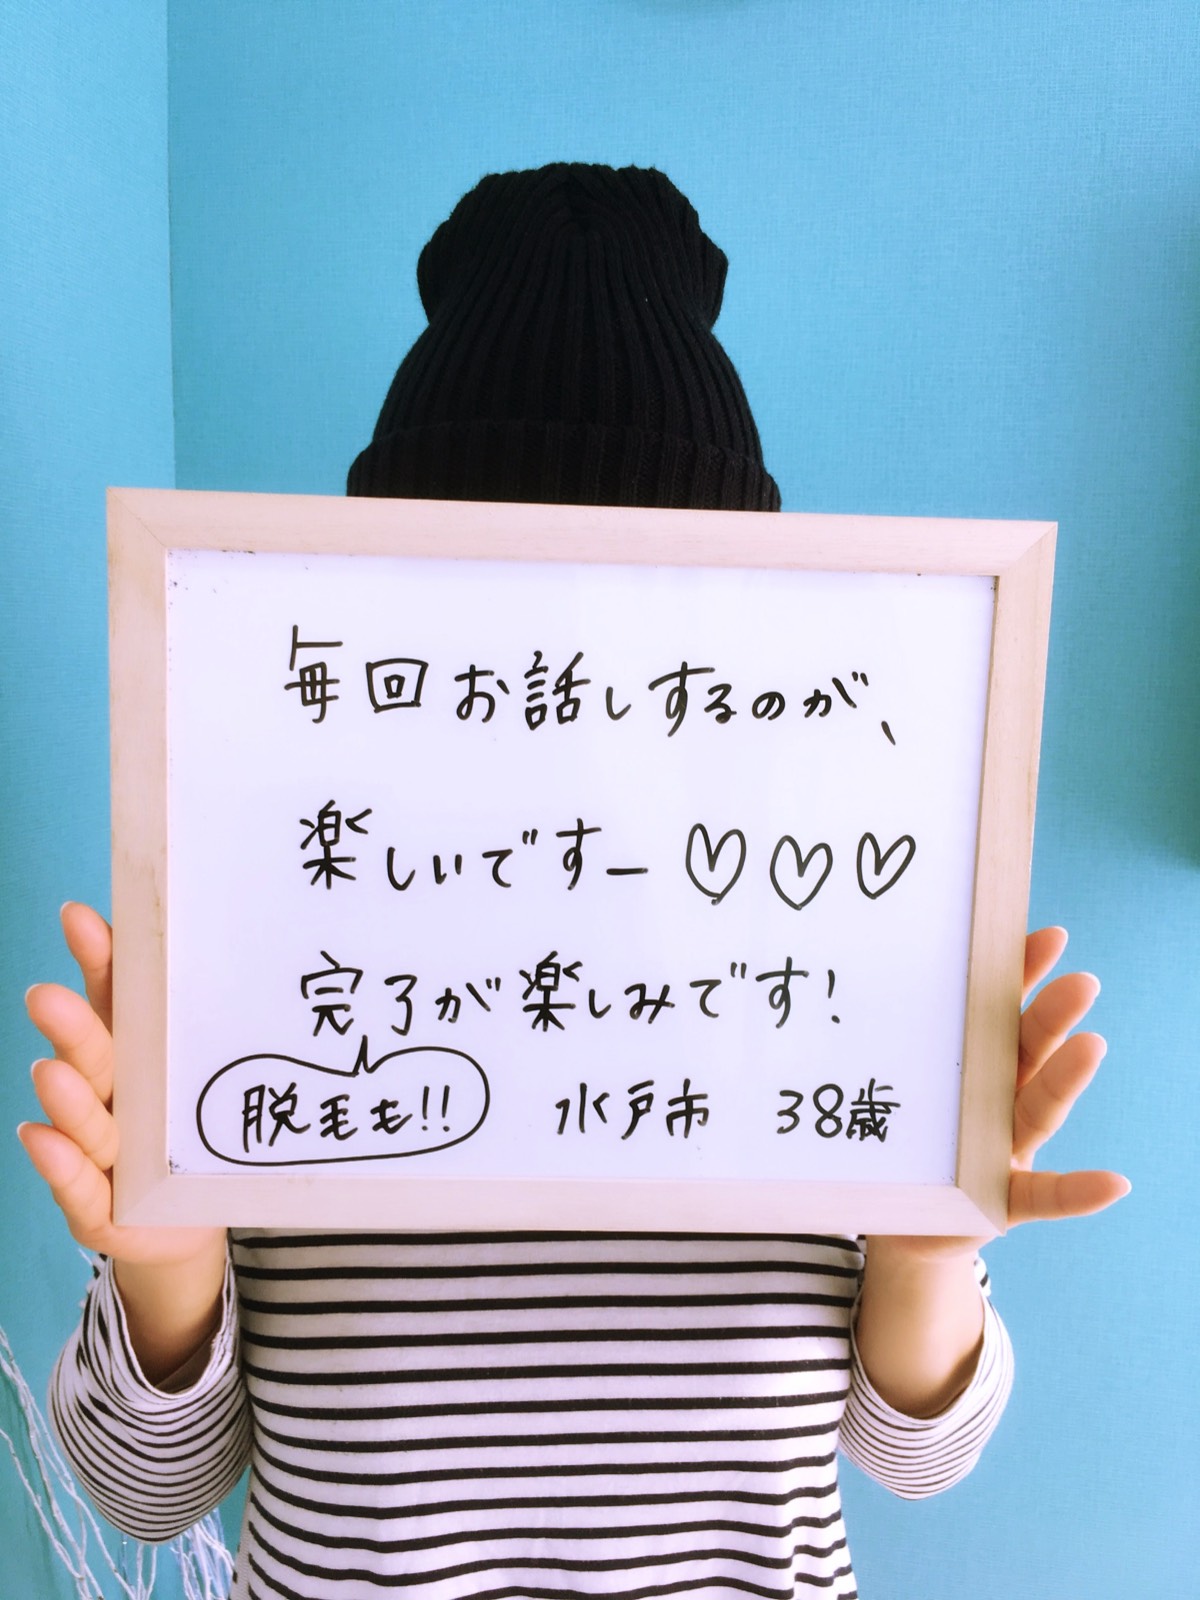 毎回お話しするのが、
楽しいですー♡♡♡
完了が楽しみです！
脱毛も!!
水戸市 38歳